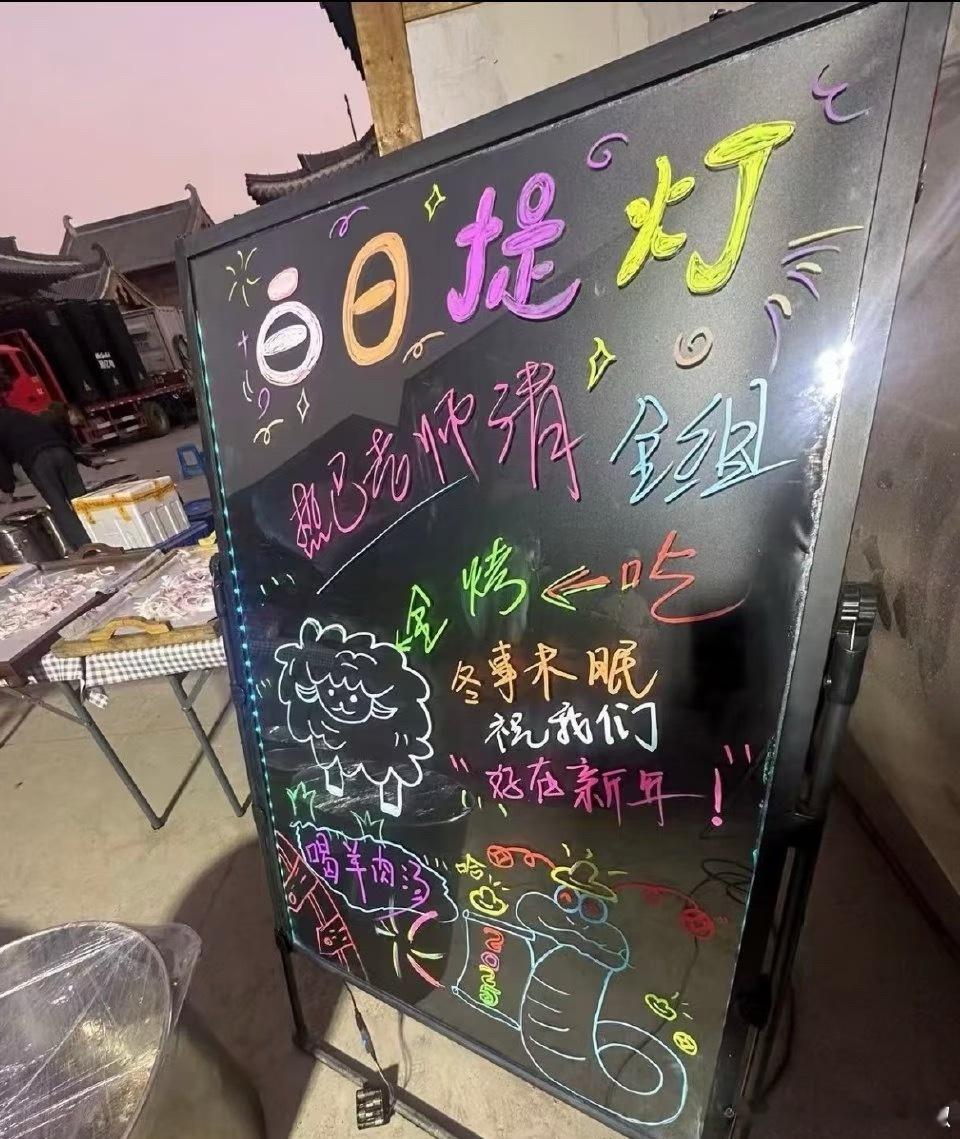 白日提灯
热巴老师请全组
吃
全烤
冬事未眠
祝我们
好在新年！
喝羊肉汤
哈
2025